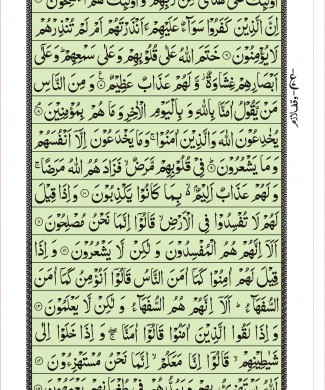 اُولٰٓئِكَ عَلٰى هُدًى مِّنْ رَّبِّهِمْ ۗ وَاُولٰٓئِكَ هُمُ الْمُفْلِحُوْنَ ۝
اِنَّ الَّذِيْنَ كَفَرُوْا سَوَآءٌ عَلَيْهِمْ ءَاَنْذَرْتَهُمْ اَمْ لَمْ تُنْذِرْهُمْ
لَا يُؤْمِنُوْنَ ۝ خَتَمَ اللّٰهُ عَلٰى قُلُوْبِهِمْ وَعَلٰى سَمْعِهِمْ ۗ وَعَلٰٓى
اَبْصَارِهِمْ غِشَاوَةٌ ۫ وَّلَهُمْ عَذَابٌ عَظِيْمٌ ۝ وَمِنَ النَّاسِ
مَنْ يَّقُوْلُ اٰمَنَّا بِاللّٰهِ وَبِالْيَوْمِ الْاٰخِرِ وَمَا هُمْ بِمُؤْمِنِيْنَ ۝
يُخٰدِعُوْنَ اللّٰهَ وَالَّذِيْنَ اٰمَنُوْا ۚ وَمَا يَخْدَعُوْنَ اِلَّآ اَنْفُسَهُمْ
وَمَا يَشْعُرُوْنَ ۝ فِيْ قُلُوْبِهِمْ مَّرَضٌ ۙ فَزَادَهُمُ اللّٰهُ مَرَضًا ۚ
وَلَهُمْ عَذَابٌ اَلِيْمٌۢ ۙ بِمَا كَانُوْا يَكْذِبُوْنَ ۝ وَاِذَا قِيْلَ
لَهُمْ لَا تُفْسِدُوْا فِي الْاَرْضِ ۙ قَالُوْٓا اِنَّمَا نَحْنُ مُصْلِحُوْنَ ۝
اَلَآ اِنَّهُمْ هُمُ الْمُفْسِدُوْنَ وَلٰكِنْ لَّا يَشْعُرُوْنَ ۝ وَاِذَا
قِيْلَ لَهُمْ اٰمِنُوْا كَمَآ اٰمَنَ النَّاسُ قَالُوْٓا اَنُؤْمِنُ كَمَآ اٰمَنَ
السُّفَهَآءُ ۗ اَلَآ اِنَّهُمْ هُمُ السُّفَهَآءُ وَلٰكِنْ لَّا يَعْلَمُوْنَ ۝
وَاِذَا لَقُوا الَّذِيْنَ اٰمَنُوْا قَالُوْٓا اٰمَنَّا ۚ وَاِذَا خَلَوْا اِلٰى
شَيٰطِيْنِهِمْ ۙ قَالُوْٓا اِنَّا مَعَكُمْ ۙ اِنَّمَا نَحْنُ مُسْتَهْزِءُوْنَ ۝